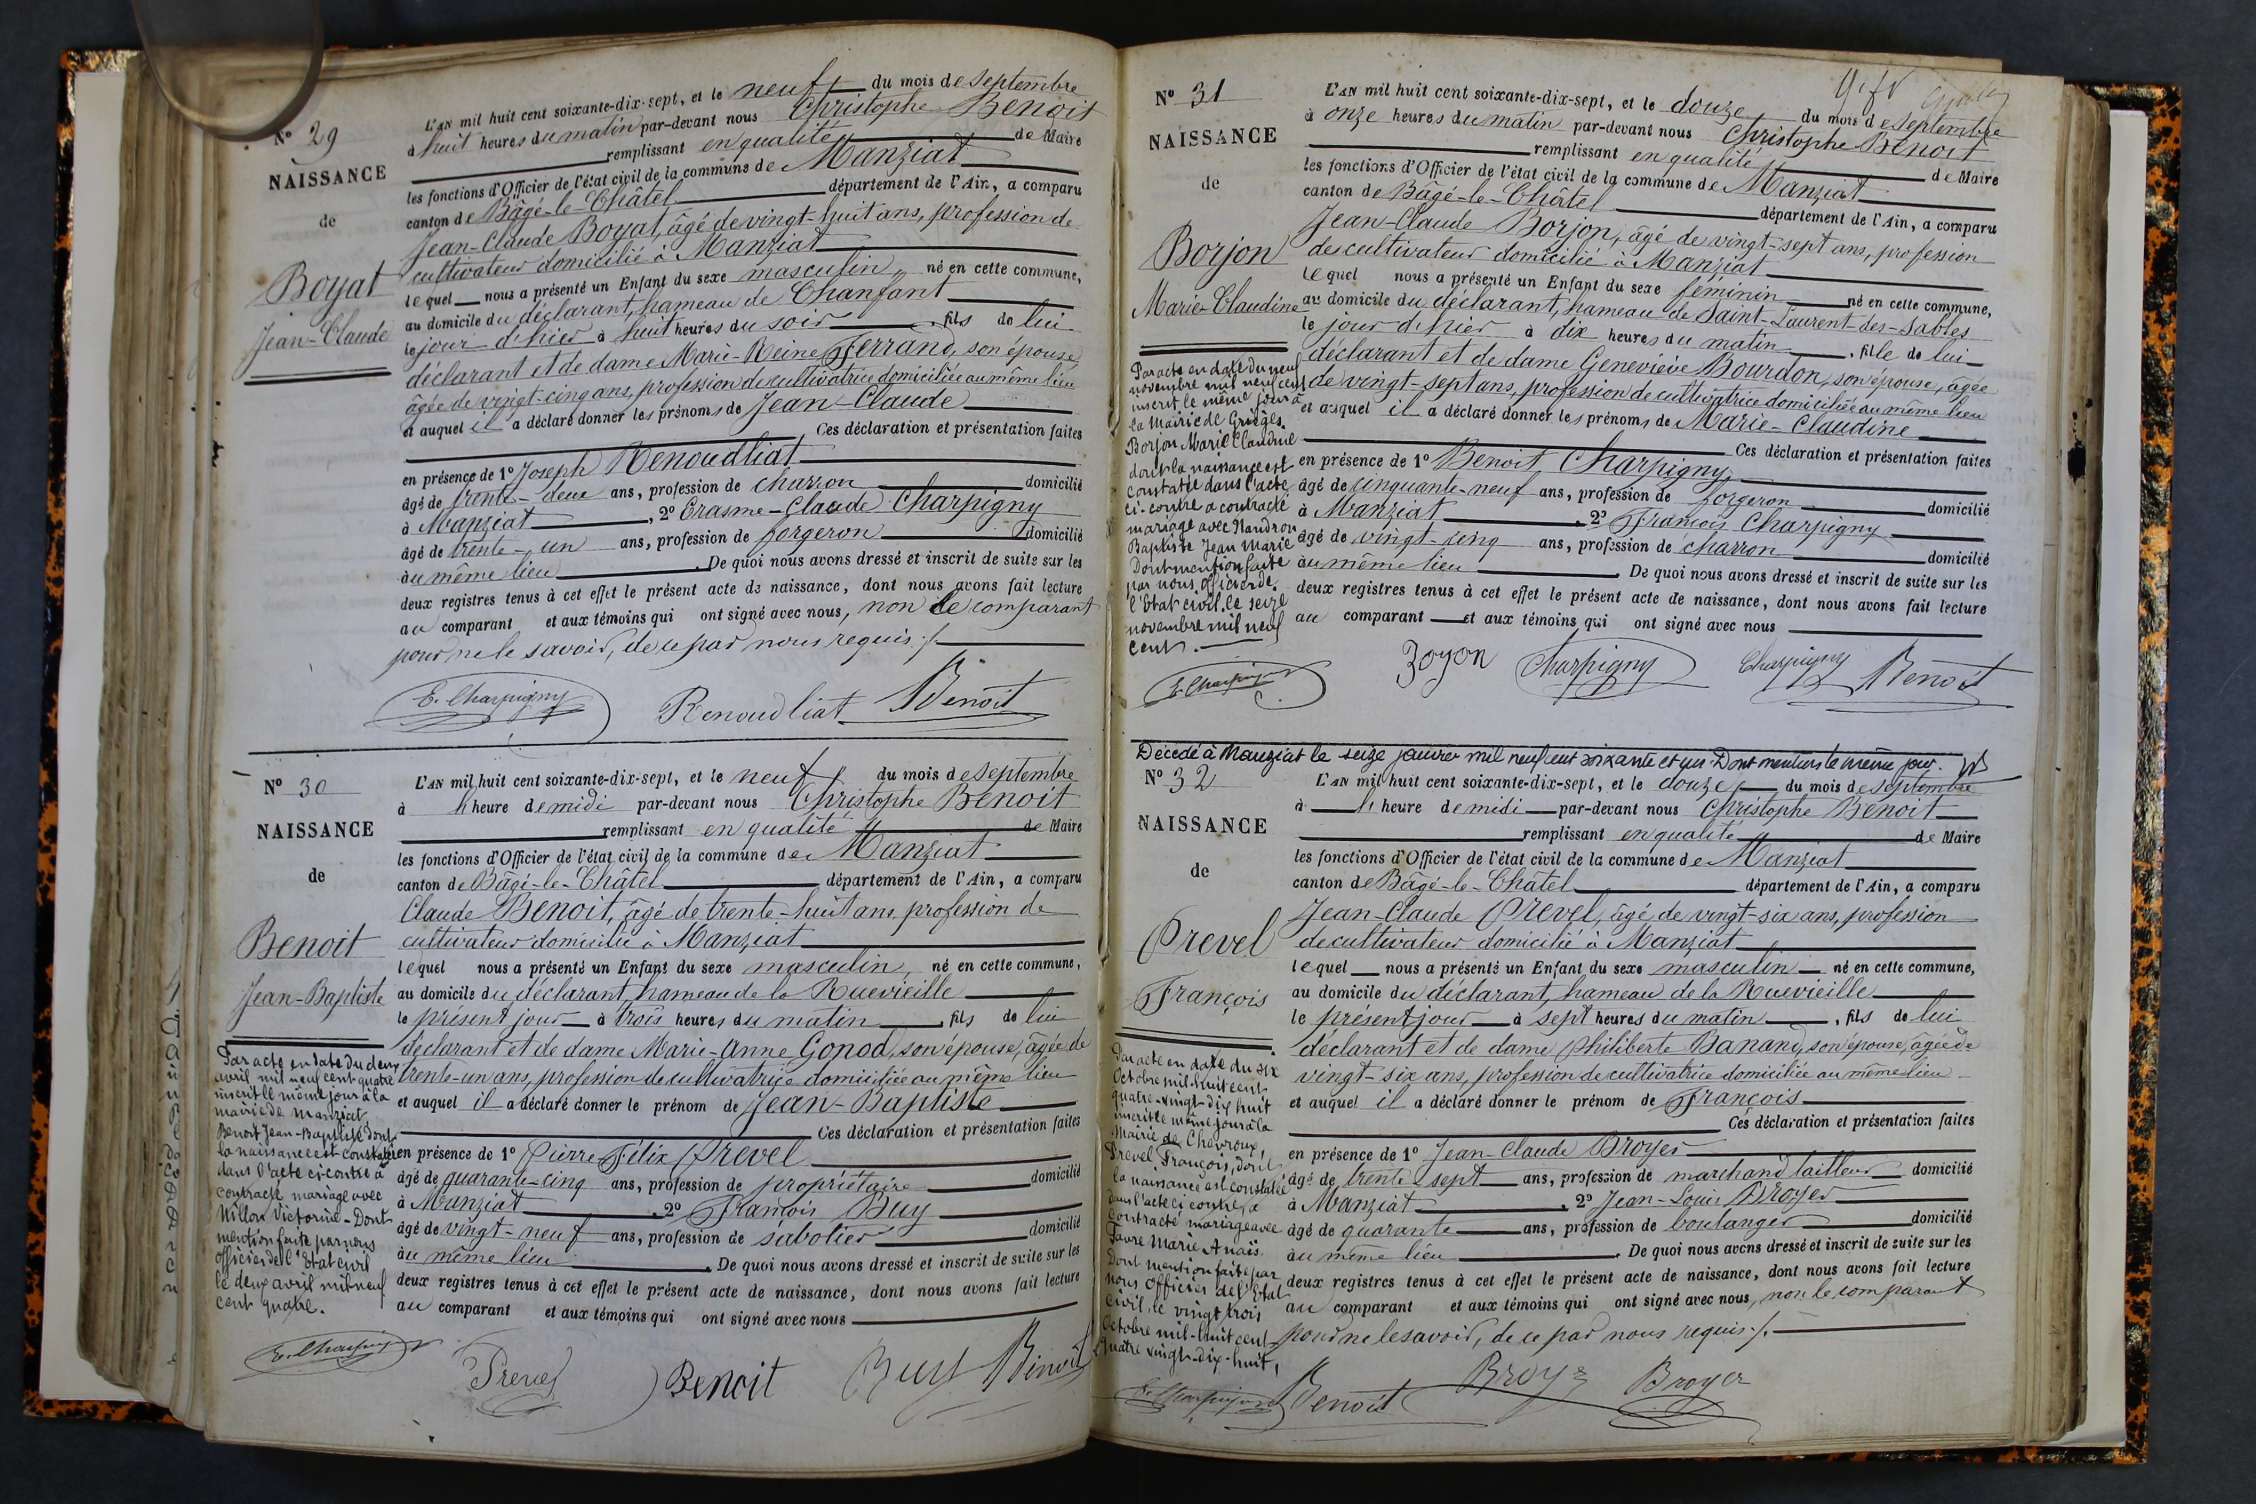 N° 29
NAISSANCE
de
Boyat
Jean-Claude
L'AN mil huit cent soixante-dix-sept, et le neuf du mois de septembre
à huit heures du matin par-devant nous Christophe Benoit
remplissant en qualité de Maire
les fonctions d'Officier de l'état civil de la commune de Manziat
canton de Bâgé-le-Châtel département de l'Ain, a comparu
Jean-Claude Boyat, âgé de vingt-huit ans, profession de
cultivateur domicilié à Manziat
lequel nous a présenté un Enfant du sexe masculin né en cette commune,
au domicile du déclarant, hameau de Chanfant
le jour d'hier à huit heures du soir, fils de lui
déclarant et de dame Marie-Reine Ferrand, son épouse
âgée de vingt-cinq ans, profession de cultivatrice domiciliée au même lieu
et auquel il a déclaré donner les prénoms de Jean-Claude
Ces déclaration et présentation faites
en présence de 1° Joseph Renoudliat
âgé de trente-deux ans, profession de charron domicilié
à Manziat, 2° Erasme-Claude Charpigny
âgé de trente-un ans, profession de forgeron domicilié
au même lieu. De quoi nous avons dressé et inscrit de suite sur les
deux registres tenus à cet effet le présent acte de naissance, dont nous avons fait lecture
au comparant et aux témoins qui ont signé avec nous, non le comparant
pour ne le savoir, de ce par nous requis ./.
E. Charpigny Renoudliat Benoit
N° 30
NAISSANCE
de
Benoit
Jean-Baptiste
Par acte en date du deux
avril mil neuf cent quatre
inscrit le même jour à la
mairie de Manziat,
Benoit Jean-Baptiste dont
la naissance est constatée
dans l'acte ci-contre a
contracté mariage avec
Nillon Victorine - Dont
mention faite par nous
officier de l'Etat civil
le deux avril mil neuf
cent quatre.
E. Charpigny
L'AN mil huit cent soixante-dix-sept, et le neuf du mois de septembre
à heure de midi par-devant nous Christophe Benoit
remplissant en qualité de Maire
les fonctions d'Officier de l'état civil de la commune de Manziat
canton de Bâgé-le-Châtel département de l'Ain, a comparu
Claude Benoit, âgé de trente-huit ans, profession de
cultivateur domicilié à Manziat
lequel nous a présenté un Enfant du sexe masculin, né en cette commune,
au domicile du déclarant, hameau de la Ruevieille
le présent jour à trois heures du matin, fils de lui
déclarant et de dame Marie-Anne Gonod, son épouse, âgée de
trente-un ans, profession de cultivatrice domiciliée au même lieu
et auquel il a déclaré donner le prénom de Jean-Baptiste
Ces déclaration et présentation faites
en présence de 1° Pierre Félix Prevel
âgé de quarante-cinq ans, profession de propriétaire domicilié
à Manziat, 2° François Buy
âgé de vingt-neuf ans, profession de sabotier domicilié
au même lieu. De quoi nous avons dressé et inscrit de suite sur les
deux registres tenus à cet effet le présent acte de naissance, dont nous avons fait lecture
au comparant et aux témoins qui ont signé avec nous
Prevel Benoit Buy Benoit
N° 31
NAISSANCE
de
Borjon
Marie-Claudine
Par acte en date du neuf
novembre mil neuf cent
inscrit le même jour à
la Mairie de Grièges
Borjon Marie Claudine
dont la naissance est
constatée dans l'acte
ci-contre a contracté
mariage avec Nandron
Baptiste Jean Marie
Dont mention faite
par nous officier de
l'Etat civil, le seize
novembre mil neuf
cent.
E. Charpigny
L'AN mil huit cent soixante-dix-sept, et le douze du mois de septembre
à onze heures du matin par-devant nous Christophe Benoit
remplissant en qualité de Maire
les fonctions d'Officier de l'état civil de la commune de Manziat
canton de Bâgé-le-Châtel département de l'Ain, a comparu
Jean-Claude Borjon, âgé de vingt-sept ans, profession
de cultivateur domicilié à Manziat
lequel nous a présenté un Enfant du sexe féminin né en cette commune,
au domicile du déclarant, hameau de Saint-Laurent-des-Sables
le jour d'hier à dix heures du matin, fille de lui
déclarant et de dame Geneviève Bourdon, son épouse, âgée
de vingt-sept ans, profession de cultivatrice domiciliée au même lieu
et auquel il a déclaré donner les prénoms de Marie-Claudine
Ces déclaration et présentation faites
en présence de 1° Benoit Charpigny
âgé de cinquante-neuf ans, profession de forgeron domicilié
à Manziat, 2° François Charpigny
âgé de vingt-cinq ans, profession de charron domicilié
au même lieu. De quoi nous avons dressé et inscrit de suite sur les
deux registres tenus à cet effet le présent acte de naissance, dont nous avons fait lecture
au comparant et aux témoins qui ont signé avec nous
Charpigny Charpigny Benoit
Décédé à Manziat le seize janvier mil neuf cent soixante et un. Dont mention le même jour.
N° 32
NAISSANCE
de
Prevel
François
Par acte en date du six
Octobre mil-huit cent-
quatre-vingt-dix huit
inscrit le même jour à la
Mairie de Chevroux,
Prevel François, dont
la naissance est constatée
dans l'acte ci contre, a
contracté mariage avec
Favre Marie Anaïs.
Dont mention faite par
nous Officier de l'Etat
civil, le vingt trois
Octobre mil-huit cent-
quatre vingt-dix-huit,
E. Charpigny
L'AN mil huit cent soixante-dix-sept, et le douze du mois de septembre
à heure de midi par-devant nous Christophe Benoit
remplissant en qualité de Maire
les fonctions d'Officier de l'état civil de la commune de Manziat
canton de Bâgé-le-Châtel département de l'Ain, a comparu
Jean-Claude Prevel, âgé de vingt-six ans, profession
de cultivateur domicilié à Manziat
lequel nous a présenté un Enfant du sexe masculin né en cette commune,
au domicile du déclarant, hameau de la Ruevieille
le présent jour à sept heures du matin, fils de lui
déclarant et de dame Philiberte Banand, son épouse, âgée de
vingt-six ans, profession de cultivatrice domiciliée au même lieu
et auquel il a déclaré donner le prénom de François
Ces déclaration et présentation faites
en présence de 1° Jean-Claude Broyer
âgé de trente-sept ans, profession de marchand tailleur domicilié
à Manziat, 2° Jean-Louis Broyer
âgé de quarante ans, profession de boulanger domicilié
au même lieu. De quoi nous avons dressé et inscrit de suite sur les
deux registres tenus à cet effet le présent acte de naissance, dont nous avons fait lecture
au comparant et aux témoins qui ont signé avec nous, non le comparant
pour ne le savoir, de ce par nous requis ./.
Benoit Broyer Broyer